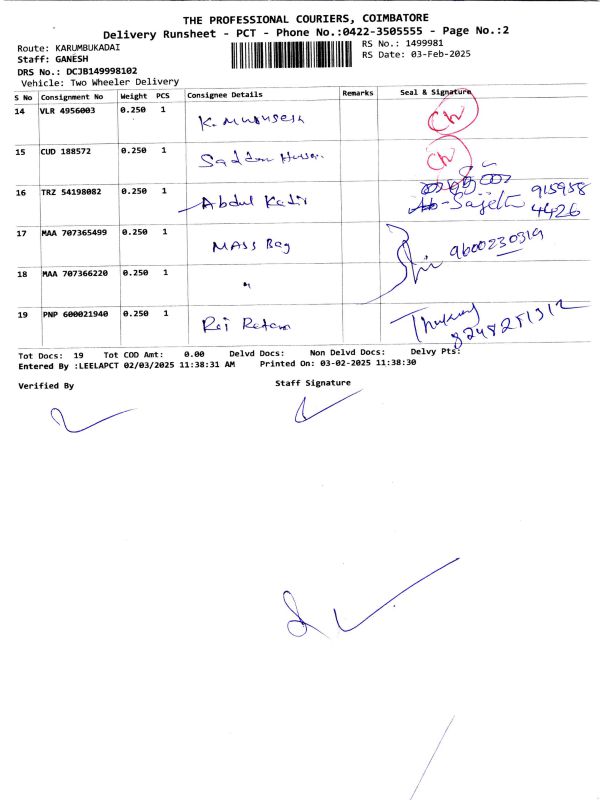 THE PROFESSIONAL COURIERS, COIMBATORE
Delivery Runsheet - PCT - Phone No.:0422-3505555 - Page No.:2
Route: KARUMBUKADAI
RS No.: 1499981
Staff: GANESH
RS Date: 03-Feb-2025
DRS No.: DCJB149998102
Vehicle: Two Wheeler Delivery
S No Consignment No Weight PCS Consignee Details Remarks Seal & Signature
14 VLR 4956003 0.250 1 K. Murugesh CW
15 CUD 188572 0.250 1 Saddam CW
16 TRZ 54198082 0.250 1 Abdul Kadir 915958
4426
17 MAA 707365499 0.250 1 MASS Bag 9600230319
18 MAA 707366220 0.250 1 "
19 PNP 600021940 0.250 1 Raj 8248251312
Tot Docs: 19 Tot COD Amt: 0.00 Delvd Docs: Non Delvd Docs: Delvy Pts:
Entered By :LEELAPCT 02/03/2025 11:38:31 AM Printed On: 03-02-2025 11:38:30
Verified By Staff Signature